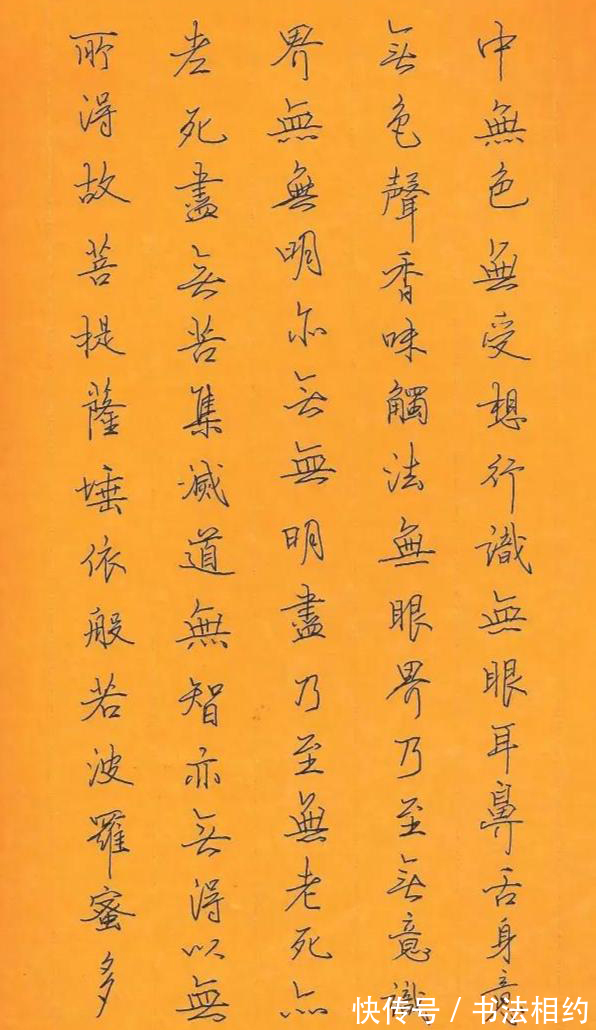 中無色無受想行識無眼耳鼻舌身意
無色聲香味觸法無眼界乃至無意識
界無無明亦無無明盡乃至無老死亦
老死盡無苦集滅道無智亦無得以無
所得故菩提薩埵依般若波羅蜜多
快传号 / 书法相约